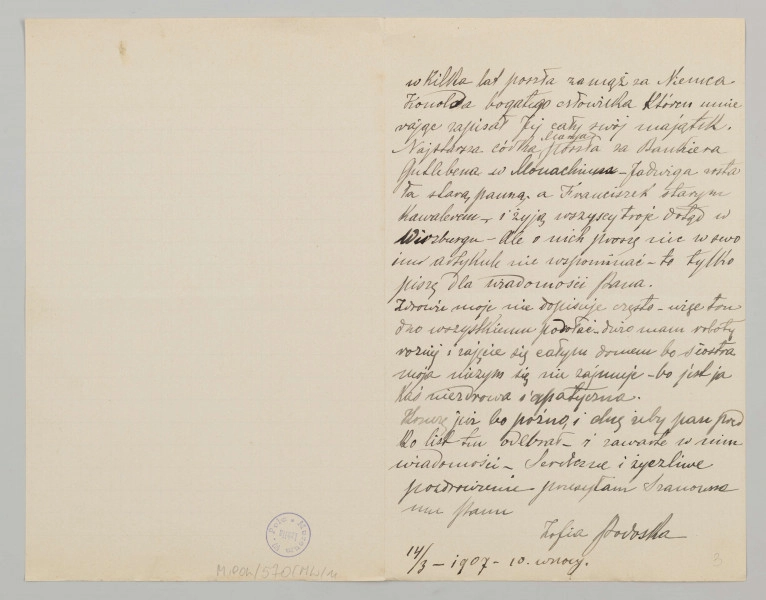 w kilka lat poszła zamąż za Niemca
Konolda bogatego człowieka który umie
rając zapisał Jej cały swój majątek.
Najstarsza córka, Marja poszła za Bankiera
Gutlebena w Monachium – Jadwiga zosta
ła starą panną, a Franciszek starym
Kawalerem – i żyją wszyscy troje dotąd w
Wiorzburgu – Ale o nich proszę nic w swo
im artykule nie wspominać – to tylko
piszę dla wiadomości Pana.
Zdrowie moje nie dopisuje często – więc tru
dno wszystkiemu podołać – dużo mam roboty
różnej i zajęcie się całym domem bo siostra
moja niczym się nie zajmuje – bo jest ja
kaś niezdrowa i apatyczna.
Kończę już bo późno, i chcę żeby pan pręd
ko list ten odebrał – i zawarte w nim
wiadomości – Serdeczne i życzliwe
pozdrowienie przesyłam Szanowne
mu Panu
Zofia Podoska
14/3 – 1907 – 10. w nocy.
3